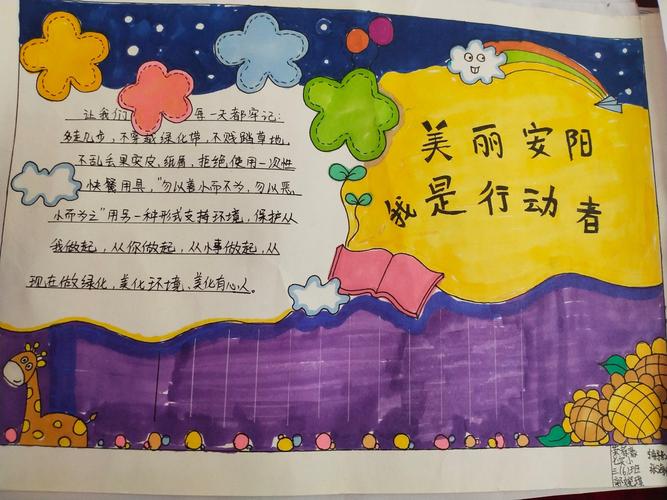 美丽安阳
我是行动者
让我们 每一天都牢记:
多走几步,不穿越绿化带,不贱踏草地,
不乱丢果实皮、纸屑,拒绝使用一次性
快餐用具,"勿以善小而不为,勿以恶
小而为之"用另一种形式支持环境,保护从
我做起,从你做起,从小事做起,从
现在做绿化,美化环境、美化有心人。
三(6)班